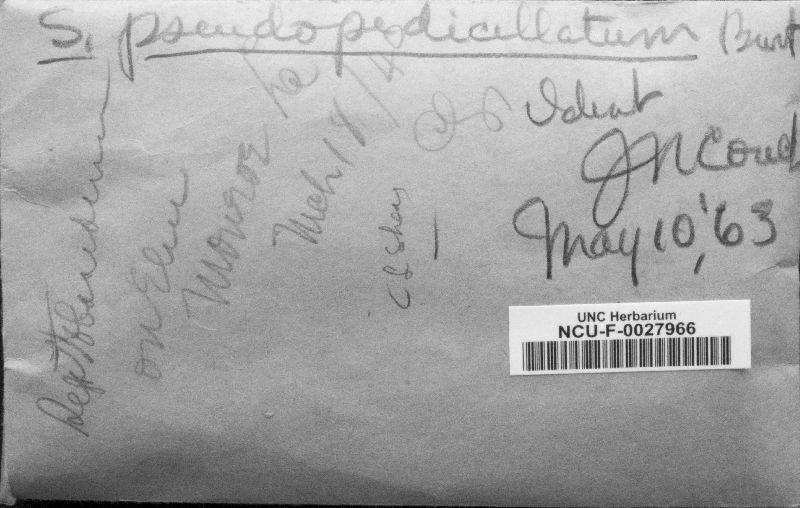 S. pseudopedicillatum Burt
Ident
JN Couch
May 10, '63
on Elm
Monroe La
Mch 18
C L Shear
UNC Herbarium
NCU-F-0027966